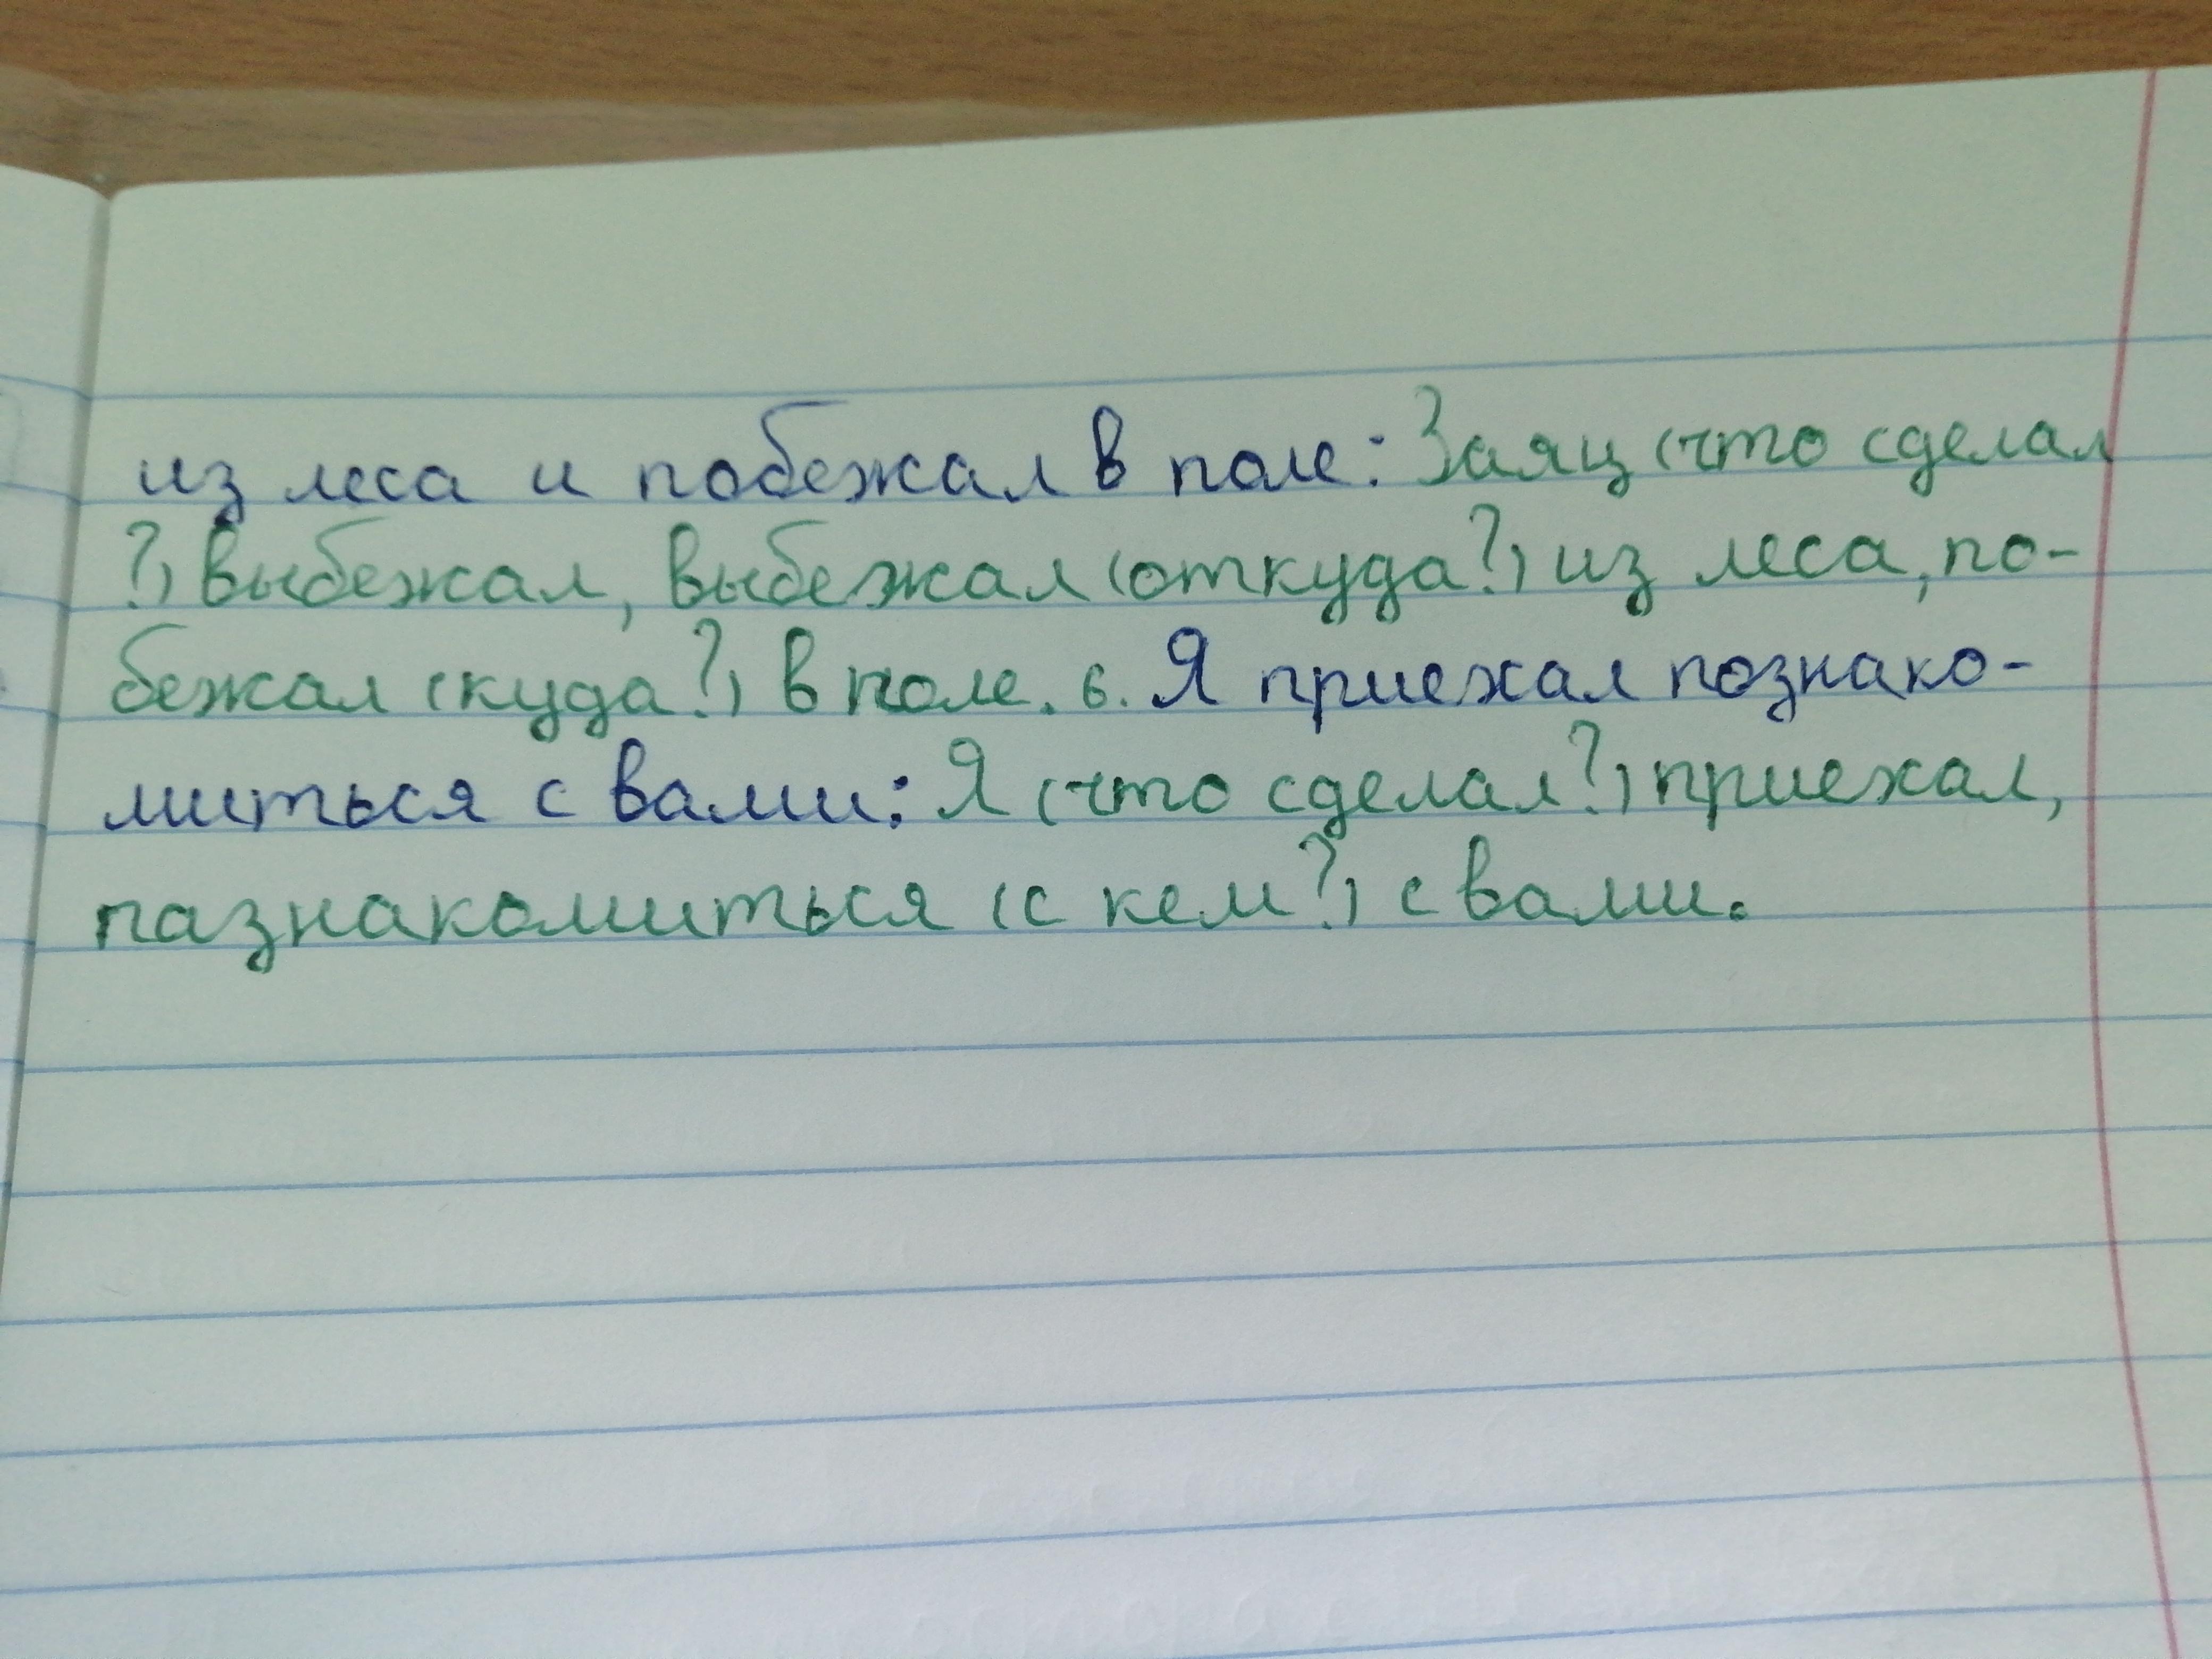 из леса и побежал в поле: Заяц (что сделал
?) выбежал, выбежал (откуда?) из леса, по-
бежал (куда?) в поле. 6. Я приехал познако-
миться с вами: Я (что сделал?) приехал,
пазнакомиться (с кем?) с вами.